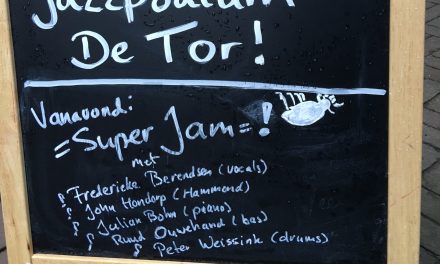 Jazzpodium
De Tor!
Vanavond:
=Super Jam=!
met
Frederieke Berendsen (vocals)
John Hondorp (Hammond)
Julian Bohn (piano)
Ruud Ouwehand (bas)
Peter Weissink (drums)